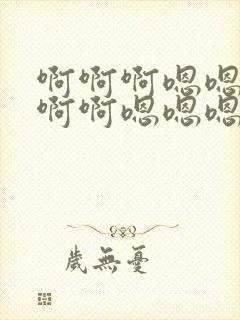 啊啊啊嗯嗯
啊啊嗯嗯嗯
歲無憂